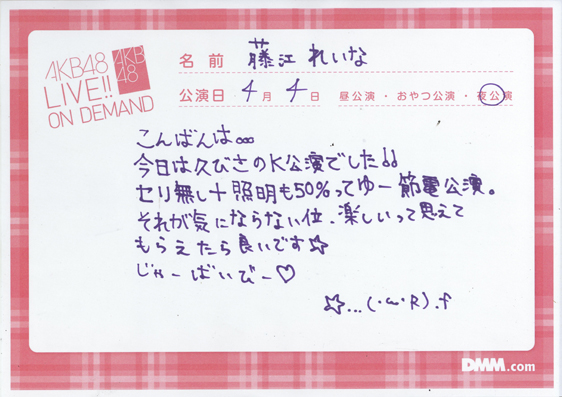 AKB48
LIVE!!
ON DEMAND
AKB
48
名前 藤江れいな
公演日 4月 4日 昼公演・おやつ公演・夜公演
こんばんは…
今日は久びさのK公演でした!!
セリ無し+照明も50%ってゆー節電公演。
それが気にならない位、楽しいって思えて
もらえたら良いです☆
じゃーばいびー♡
☆...(・ω・R).f
DMM.com